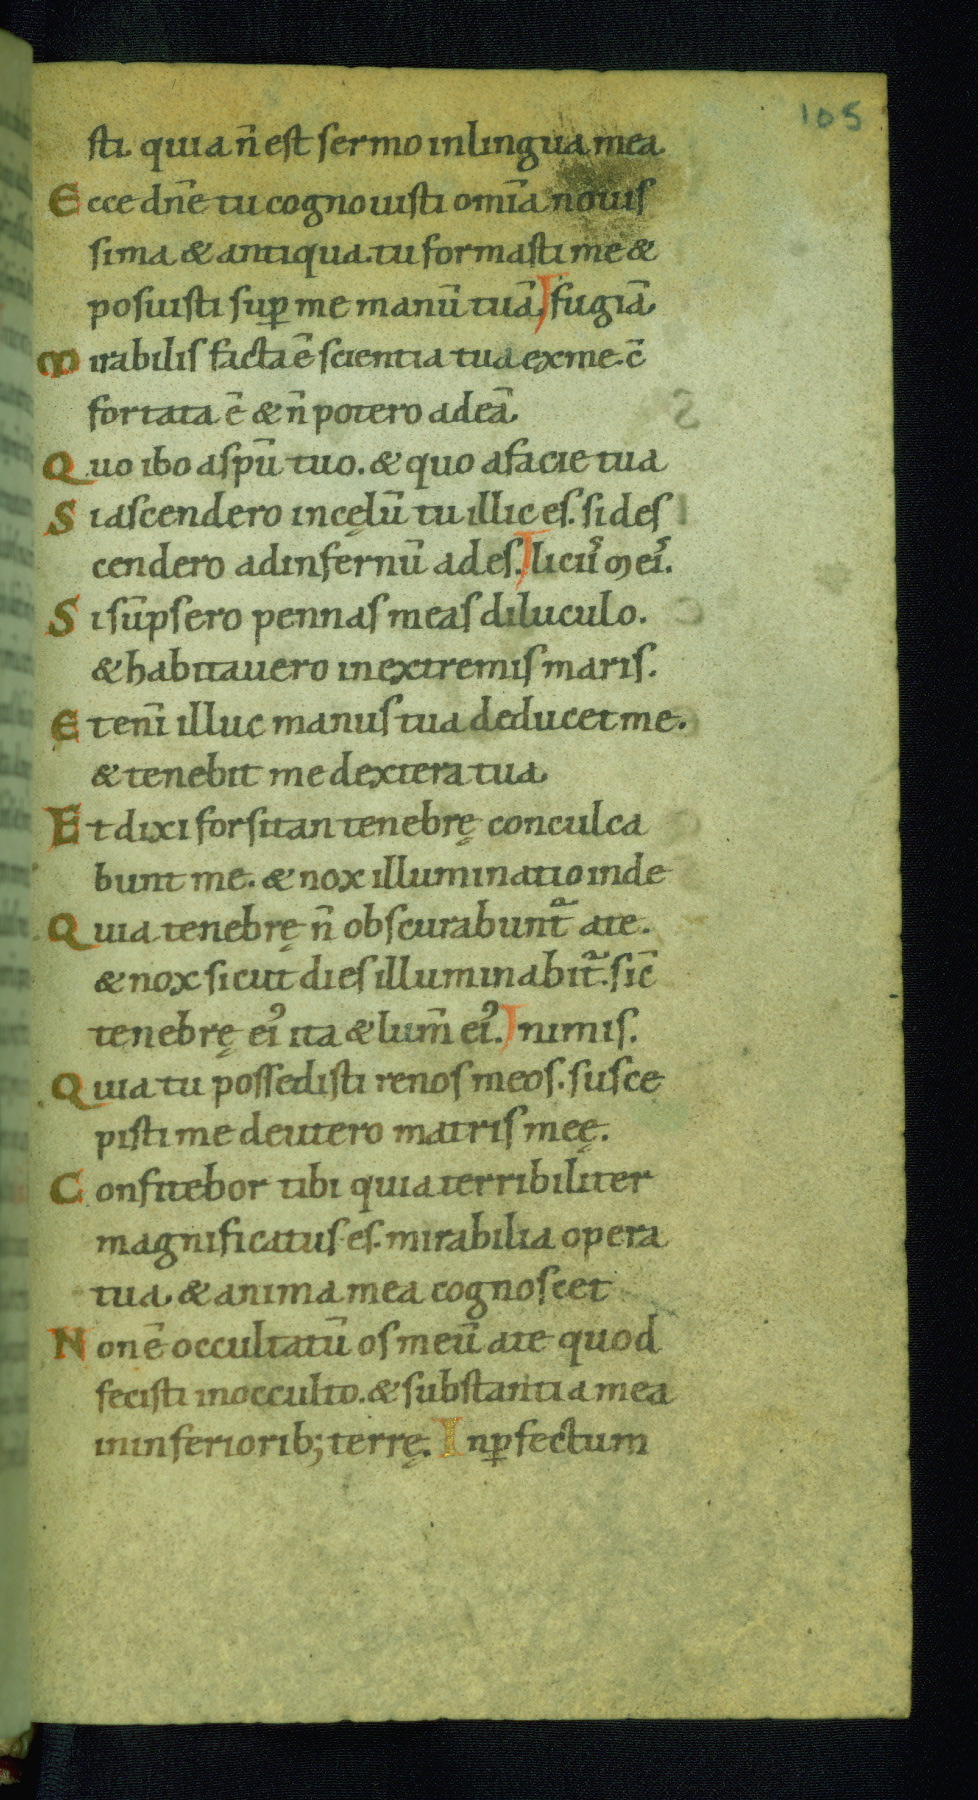 105
sti. quia n̄ est sermo inlingua mea
Ecce dn̄e tu cognouisti om̄ia nouis
sima & antiqua. tu formasti me &
posuisti sup̄ me manū tuā. fugiā
Mirabilis facta ē scientia tua exme. c̄
fortata ē & n̄ potero adeā.
Quo ibo aspū tuo. & quo afacie tua
Siascendero incęlū tu illic es. sides
cendero adinfernū ades. liciꝰ mei.
Sisūpsero pennas meas diluculo.
& habitauero inextremis maris.
Etenī illuc manus tua deducet me.
& tenebit me dextera tua.
Et dixi forsitan tenebrę conculca
bunt me. & nox illuminatio inde
Quia tenebrę n̄ obscurabunt̄ ate.
& nox sicut dies illuminabit̄. sic̄
tenebrę eiꝰ ita & lum̄ eiꝰ. nimis.
Quia tu possedisti renos meos. susce
pisti me deutero matris meę.
Confitebor tibi quia terribiliter
magnificatus es. mirabilia opera
tua. & anima mea cognoscet
Non ē occultatū os meū ate quod
fecisti inocculto. & substantia mea
ininferiorib; terrę. Inp̄fectum